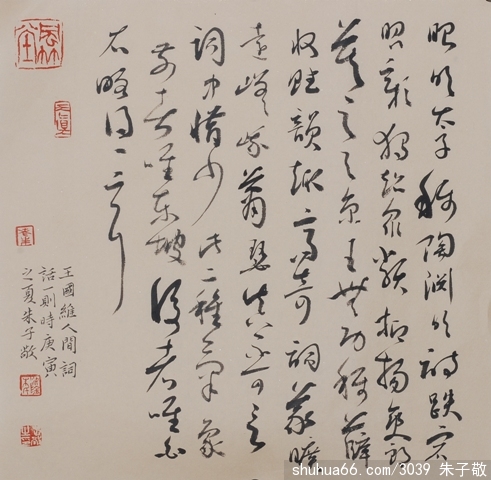 昭明太子稱陶淵明詩跌宕
昭彰獨超眾類抑揚爽朗
莫之與京王無功稱薛
收賦韻趣高奇詞義晦
遠嵯峨蕭瑟真不可言
詞中惜少此二種氣象
前者唯東坡後者唯白
石略得一二耳
王國維人間詞
話一則時庚寅
之夏朱子敬
shuhua66.com/3039 朱子敬